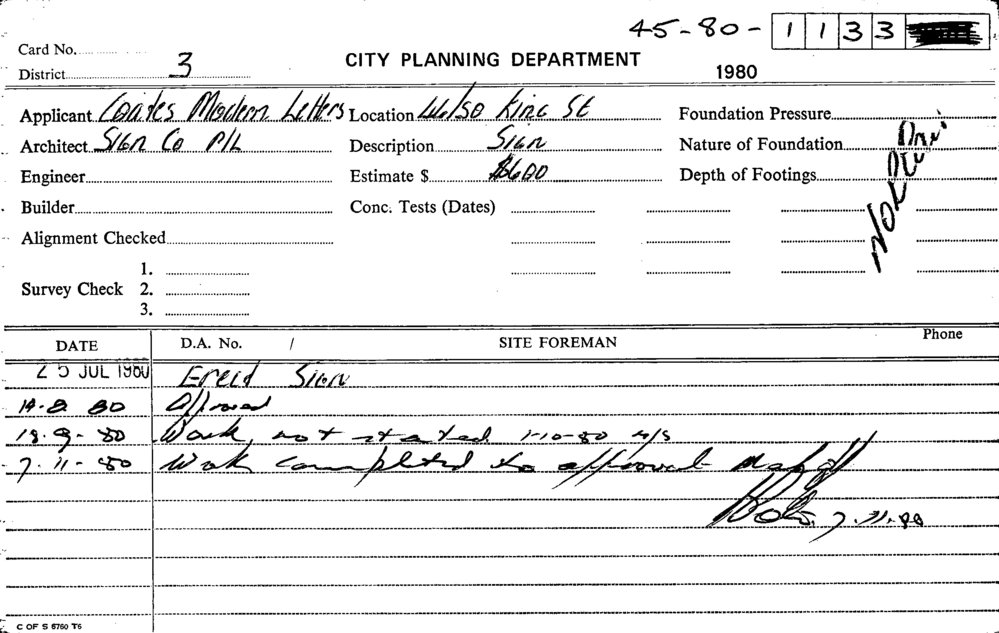 45-80- 1 1 3 3
Card No.
District 3
CITY PLANNING DEPARTMENT
1980
Applicant Coates Modern Letters
Location 46/50 King St
Foundation Pressure
Architect Sign Co P/L
Description Sign
Nature of Foundation
Engineer
Estimate $ $600
Depth of Footings
Builder
Conc. Tests (Dates)
Alignment Checked
Survey Check
1.
2.
3.
DATE
D.A. No. /
SITE FOREMAN
Phone
25 JUL 1980 Erect Sign
19.8 80 Approved
18.9.80 Work not started 1-10-80 N/S
7.11-80 Work completed to approval
7.11.80
C OF S 6760 T6